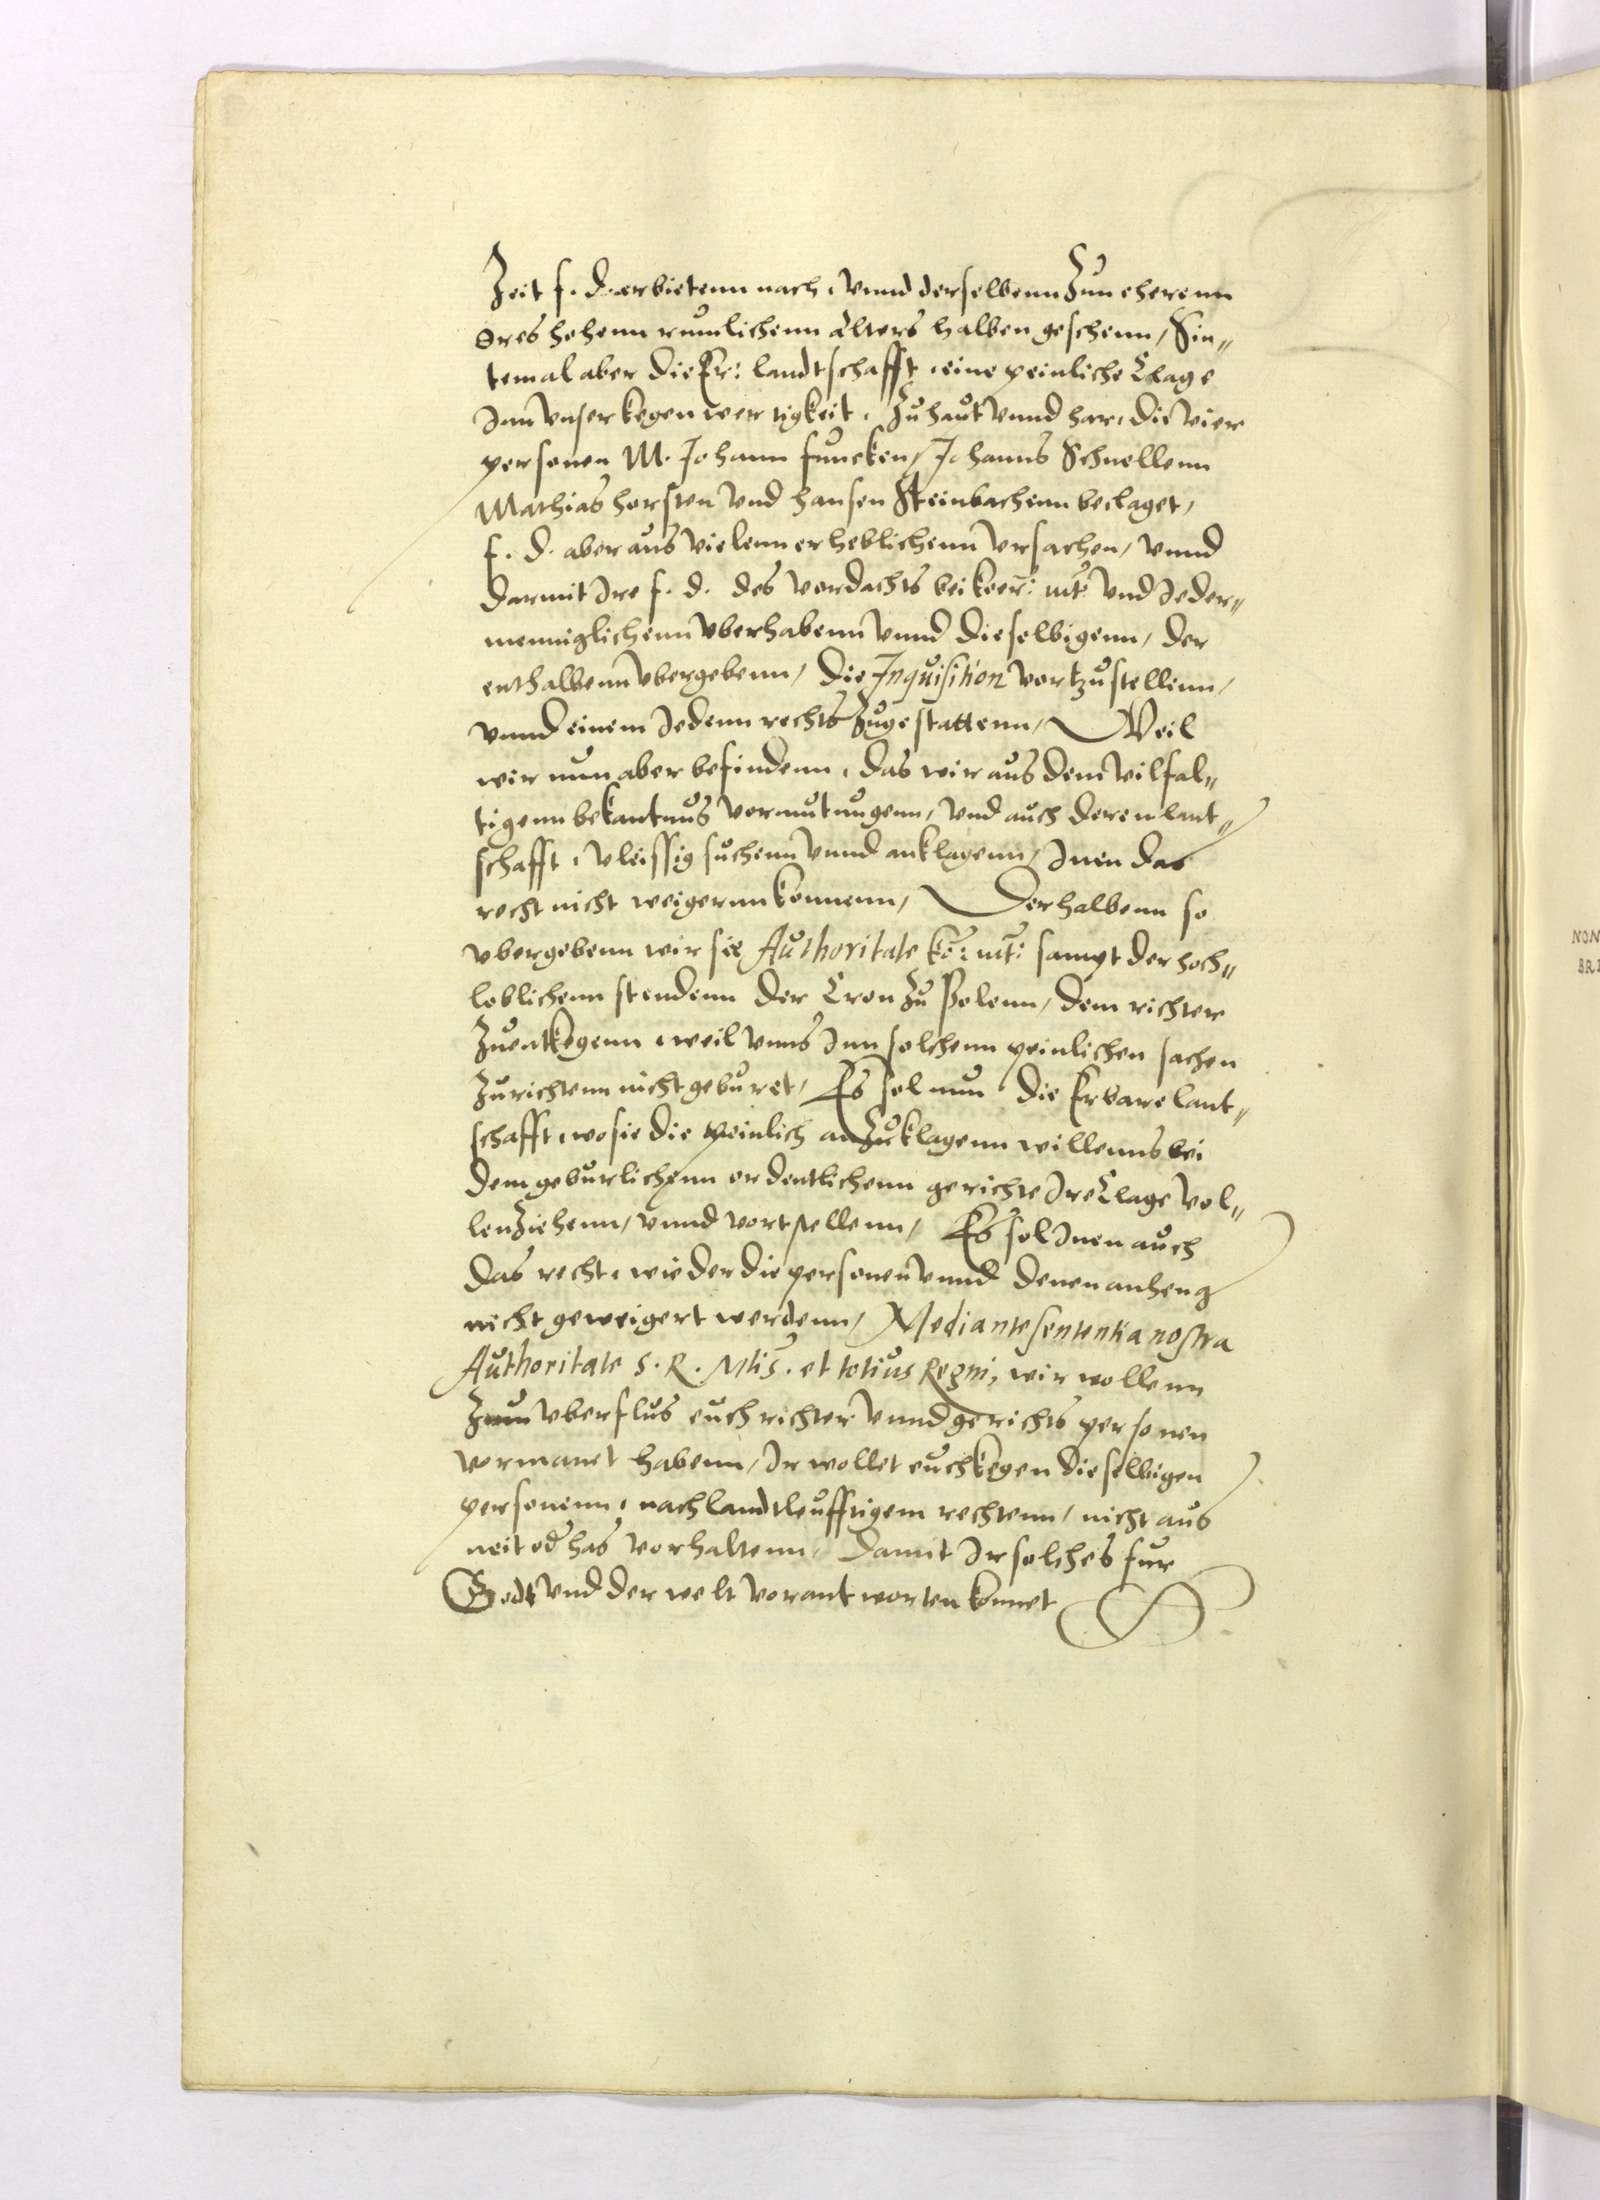 Zeit f. d. erbietenn nach, vnnd derselbenn Zun eherenn
Ires hohenn rumlichenn alters halben geschenn, Sin„
temal aber die Er: landtschafft, eine peinliche Clage
Inn vnser kegenwertigkeit, Zu haut vnnd har, die vier
personen M. Johann funcken, Johanns Schnellenn
Mathias horsten vnd hansen Steinbachenn beclaget,
f. d. aber aus vielenn erheblichenn vrsachen, vnnd
darmit Ire f. d. des vordachts bei koer: mt: vnd Ieder„
menniglichenn vberhabenn vnnd dieselbigenn, der
enthalbenn vbergebenn, die Inquisition vortzustellenn,
vnnd einem Iedenn rechts Zugestattenn, Weil
wir nun aber befindenn, das wir aus dem vilfal„
tigenn bekantnus vermutungenn, vnd auch deren lant„
schafft, vleissig suchenn vnnd anklagenn, Inen das
recht nicht weigernn konnenn, Derhalbenn so
vbergebenn wir sie Authoritate ko: mt: sampt der hoch„
loblichenn stendenn der Cron Zu Polenn, dem richter
Zuentkegenn, weil vnns Inn solchenn peinlichen sachen
Zurichtenn nicht geburet, Es sol nun die Erbare lant„
schafft, wo sie die peinlich anZuklagenn willenns bei
dem geburlichenn ordentlichenn gerichte Ire Clage vol„
lenZiehenn, vnnd vortstellenn, Es sol Inen auch
das recht, wieder die personen vnnd denen anheng
nicht geweigert werdenn, Mediante sententia nostra
Authoritate S. R. Mtis. et totius Regni, wir wollenn
Zum vberflus euch richter vnnd gerichts personen
vermanet habenn, Ir wollet euch kegen dieselbigen
personenn, nach landtleufftigem rechtenn, nicht aus
neit od has vorhaltenn, Damit Ir solches fur
Godt vnd der welt verantworten konnet